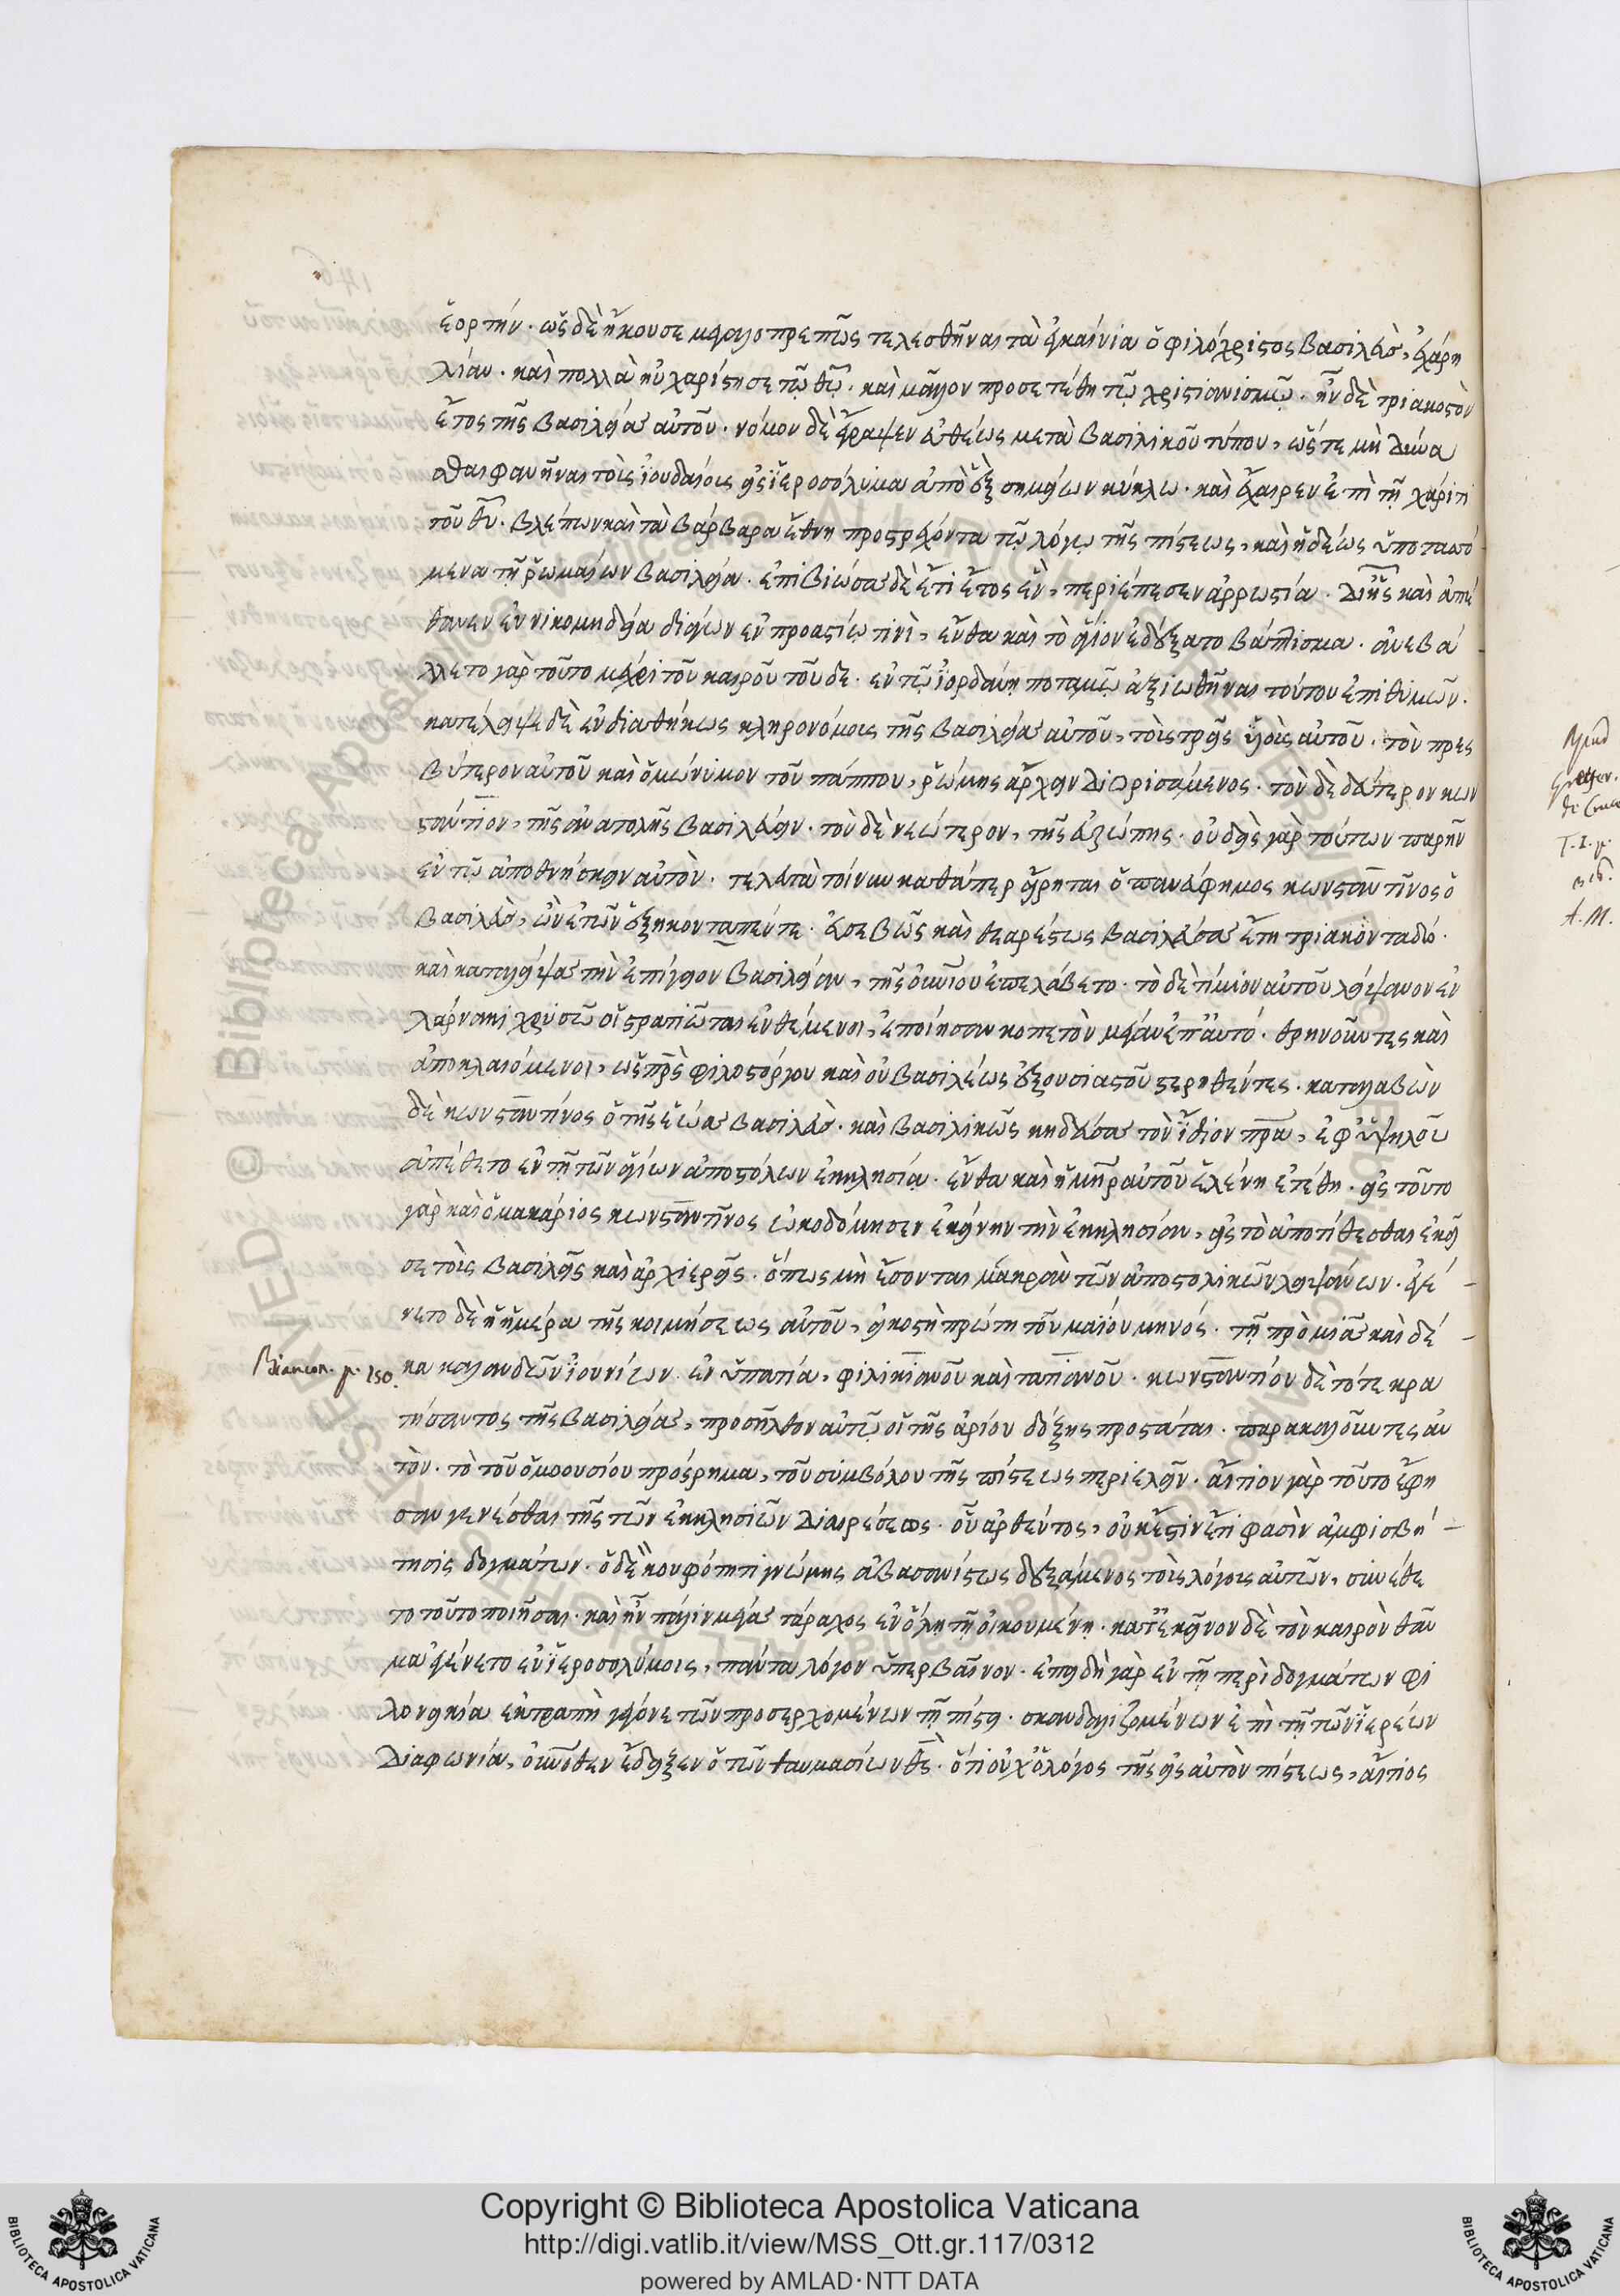 ἑορτήν. ὡς δὲ ἤκουσε μεγαλοπρεπῶς τελεσθῆναι τὰ ἐγκαίνια ὁ φιλόχριστος βασιλεὺς, ἐχάρη
λίαν. καὶ πολλὰ ηὐχαρίστησε τῷ θῶ. καὶ μᾶλλον προσετέθη τῷ χριστιανισμῷ. ἦν δὲ τριακοστὸν
ἔτος τῆς βασιλείας αὐτοῦ. νόμον δὲ ἔγραψεν εὐθέως μετὰ βασιλικοῦ τύπου, ὥστε μὴ δύνα
σθαι φανῆναι τοῖς ἰουδαίοις εἰς ἱεροσόλυμα ἀπὸ ἓξ σημείων κύκλω. καὶ ἔχαιρεν ἐπὶ τῇ χάριτι
τοῦ θυ. βλέπων καὶ τὰ βάρβαρα ἔθνη προστρέχοντα τῷ λόγῳ τῆς πίστεως, καὶ ἡδέως ὑποτασσό
μενα τῇ ῥωμαίων βασιλεία. ἐπιβιώσας δὲ ἔτι ἔτος ἓν, περιέπεσεν ἀρρωστία. δι ἧς καὶ ἀπέ
θανεν ἐν νικομηδεία διάγων ἐν προαστίω τινὶ, ἔνθα καὶ τὸ ἅγιον ἐδέξατο βάπτισμα. ἀνεβά
λλετο γὰρ τοῦτο μέχρι τοῦ καιροῦ τοῦδε. ἐν τῷ ἰορδάνῃ ποταμῷ ἀξιωθῆναι τούτου ἐπιθυμῶν.
κατέλειψε δὲ ἐν διαθήκαις κληρονόμοις τῆς βασιλείας αὐτοῦ, τοῖς τρεῖς υἱοῖς αὐτοῦ. τὸν πρεσ
βύτερον αὐτοῦ καὶ ὁμώνυμον τοῦ πάππου, ῥώμης ἄρχειν διορισάμενος. τὸν δὲ δεύτερον κων
στάντιον, τῆς ἀνατολῆς βασιλεύειν. τὸν δὲ νεώτερον, τῆς εὐρώπης. οὐδεὶς γὰρ τούτων παρῆν
ἐν τῷ ἀποθνήσκειν αὐτὸν. τελευτᾶ τοίνυν καθάπερ εἴρηται ὁ πανεύφημος κωνσταντῖνος ὁ
βασιλεὺς, ὢν ἐτῶν ἑξηκονταπέντε. εὐσεβῶς καὶ θεαρέστως βασιλεύσας ἔτη τριακονταδύο.
καὶ καταλείψας τὴν ἐπίγειον βασιλείαν, τῆς αἰωνίου ἐπελάβετο. τὸ δὲ τίμιον αὐτοῦ λείψανον ἐν
λάρνακι χρυσῶ οἱ στρατιῶται ἐνθέμενοι, ἐποίησαν κοπετὸν μέγαν ἐπ' αὐτό. θρηνοῦντες καὶ
ἀποκλαιόμενοι, ὡς πρς φιλοστόργου καὶ οὐ βασιλέως ἐξουσιαστοῦ στερηθέντες. καταλαβὼν
δὲ κωνσταντίνος ὁ τῆς ἑώας βασιλεὺς. καὶ βασιλικῶς κηδεύσας τὸν ἴδιον πρα, ἐφ' ὑψηλοῦ
ἀπέθετο ἐν τῇ τῶν ἁγίων ἀποστόλων ἐκκλησία. ἔνθα καὶ ἡ μηρ αὐτοῦ ἑλένη ἐτέθη. εἰς τοῦτο
γὰρ καὶ ὁ μακάριος κωνσταντῖνος ὠκοδόμησεν ἐκείνην τὴν ἐκκλησίαν, εἰς τὸ ἀποτίθεσθαι ἐκεῖ
σε τοῖς βασιλεῖς καὶ ἀρχιερεῖς. ὅπως μὴ ἔσονται μακρὰν τῶν ἀποστολικῶν λειψάνων. ἐγέ
νετο δὲ ἡ ἡμέρα τῆς κοιμήσεως αὐτοῦ, εἰκοστὴ πρώτη τοῦ μαΐου μηνός. τῇ πρὸ μιᾶς καὶ δέ
Biancon. p. 150. κα καλανδῶν ἰουνίων. ἐν ὑπατία, φιλικιανοῦ καὶ τατιανοῦ. κωνσταντίου δὲ τότε κρα
τήσαντος τῆς βασιλείας, προσῆλθον αὐτῷ οἱ τῆς ἀρίου δόξης προστάται. παρακαλοῦντες αὐ
τὸν. τὸ τοῦ ὁμοουσίου πρόσρημα, τοῦ συμβόλου τῆς πίστεως περιελεῖν. αἴτιον γὰρ τοῦτο ἔφη
σαν γενέσθαι τῆς τῶν ἐκκλησιῶν διαιρέσεως. οὗ ἀρθέντος, οὐκ ἔστιν ἔτι φασὶν ἀμφισβή
τησις δογμάτων. ὁ δὲ κουφότητι γνώμης ἀβασανίστως δεξάμενος τοῖς λόγοις αὐτῶν, συνέθε
το τοῦτο ποιῆσαι. καὶ ἦν πάλιν μέγας τάραχος ἐν ὅλῃ τῇ οἰκουμένῃ. κατ' ἐκεῖνον δὲ τὸν καιρὸν θαῦ
μα ἐγένετο ἐν ἱεροσολύμοις, πάντα λόγον ὑπερβαῖνον. ἐπειδὴ γὰρ ἐν τῇ περὶ δογμάτων φι
λονεικία ἐκτραπὴ γέγονε τῶν προσερχομένων τῇ πίστει. σκανδαλιζομένων ἐπὶ τῇ τῶν ἱερέων
διαφωνία, οὐνόθεν ἔδειξεν ὁ τῶν θαυμασίων θς. ὅτι οὐχ ὁ λόγος τῆς εἰς αὐτὸν πίστεως, αἴτιος
T. I. p.
A. M.
Copyright © Biblioteca Apostolica Vaticana
http://digi.vatlib.it/view/MSS_Ott.gr.117/0312
powered by AMLAD·NTT DATA
BIBLIOTECA APOSTOLICA VATICANA
BIBLIOTECA APOSTOLICA VATICANA